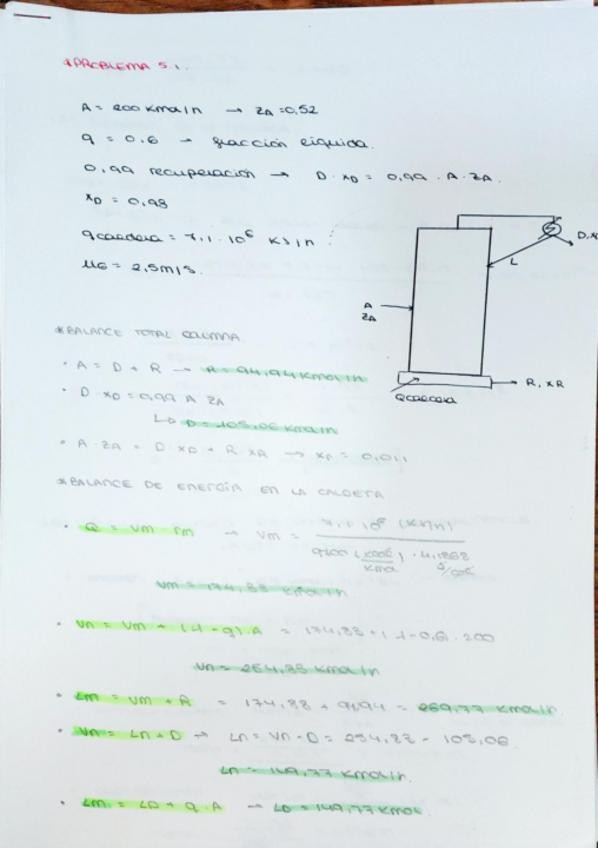 *PROBLEMA 5.1.
A = 200 Kmol/h → ZA = 0,52
q = 0,6 → fracción líquida.
0,99 recuperación → D · xD = 0,99 · A · ZA.
xD = 0,98
qcaldera = 7,1 · 10⁶ KJ/h
μG = 2,5 m/s.
L
A
ZA
R, xR
Qcaldera
*BALANCE TOTAL COLUMNA
· A = D + R → R = 94,94 Kmol/h
· D · xD = 0,99 A ZA
↳ D = 105,06 Kmol/h
· A · ZA = D · xD + R · xR → xR = 0,011
*BALANCE DE ENERGÍA EN LA CALDERA
· Q = Vm · rm → Vm =
Vm = 174,88 Kmol/h
· Vn = Vm + (1-q) · A = 174,88 + (1-0,6) · 200
Vn = 254,88 Kmol/h
· Lm = Vm + R = 174,88 + 94,94 = 269,77 Kmol/h
· Vn = Ln + D → Ln = Vn - D = 254,88 - 105,06
Ln = 149,77 Kmol/h.
· Lm = L0 + q · A → L0 = 149,77 Kmol